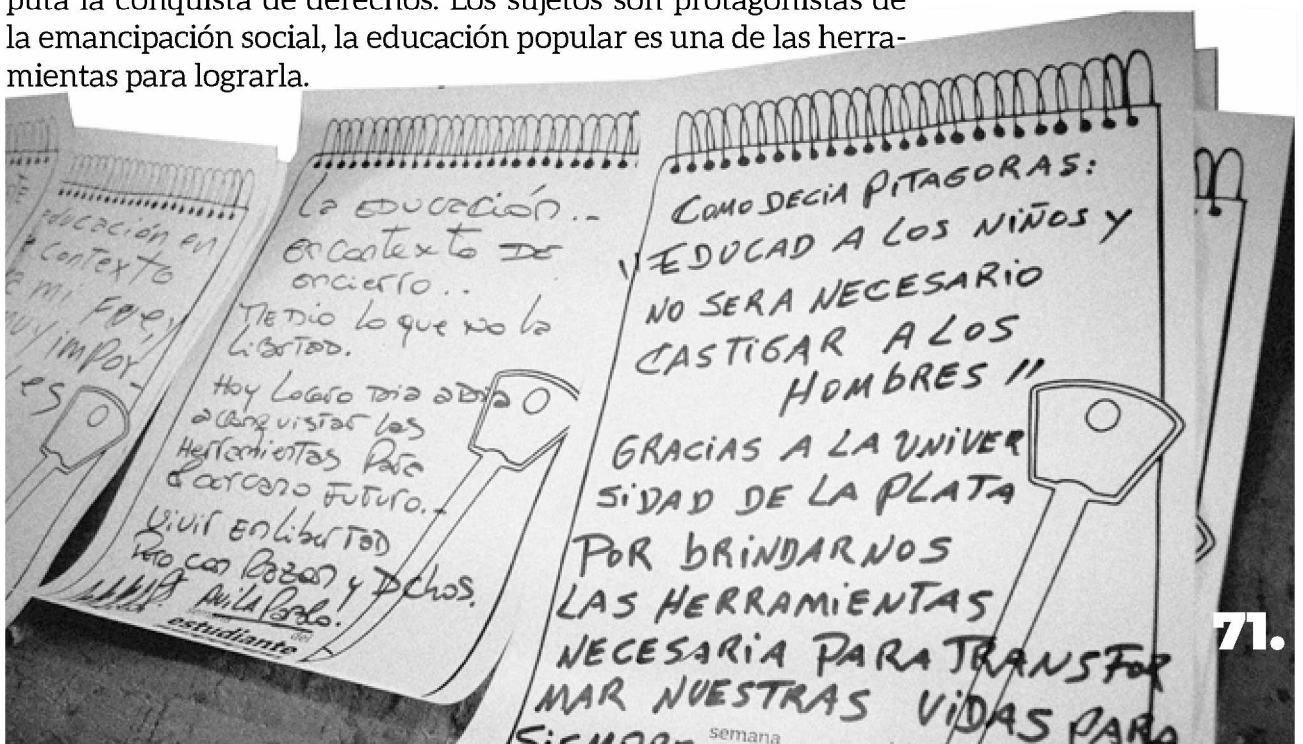 puta la conquista de derechos. Los sujetos son protagonistas de
la emancipación social, la educación popular es una de las herra-
mientas para lograrla.
educación en
contexto
mi
impor
es
La EDUCación..
en contexto DE
encierro..
ME DIO lo que no la
LiberTAD.
Hoy Logro Dia a Dia
a conquistar las
Herramientas Para
cercano FUTURO..
Vivir En liberTAD
Pero con Razon y DChos.
AviLA Pablo.
del
estudiante
COMO DECIA PITAGORAS:
"EDUCAD A LOS NIÑOS Y
NO SERA NECESARIO
CASTIGAR A LOS
HOMBRES"
GRACIAS A LA UNIVER
SIDAD DE LA PLATA
POR BRINDARNOS
LAS HERRAMIENTAS
NECESARIA PARA TRANSFOR
MAR NUESTRAS VIDAS PARA
SIEMPRE
semana
71.